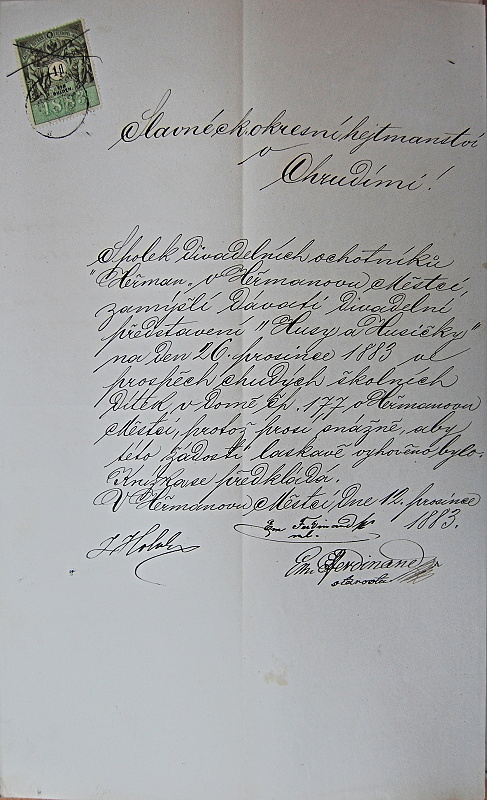 1883
Slavné c.k. okresní hejtmanství
v
Chrudimi!
Spolek divadelních ochotníků
"Heřman" v Heřmanovu Městci,
zamýšlí dávati divadelní
představení "Husy a Husičky"
na den 26. prosince 1883 ve
prospěch chudých školních
dítek, v domě čp. 177 v Heřmanovu
Městci, pročož prosí snažně, aby
této žádosti laskavě vyhověno bylo.
Kniha se předkládá.
V Heřmanovu Městci, dne 12. prosince
1883.
Em. Ferdinand
Em. Ferdinand
starosta